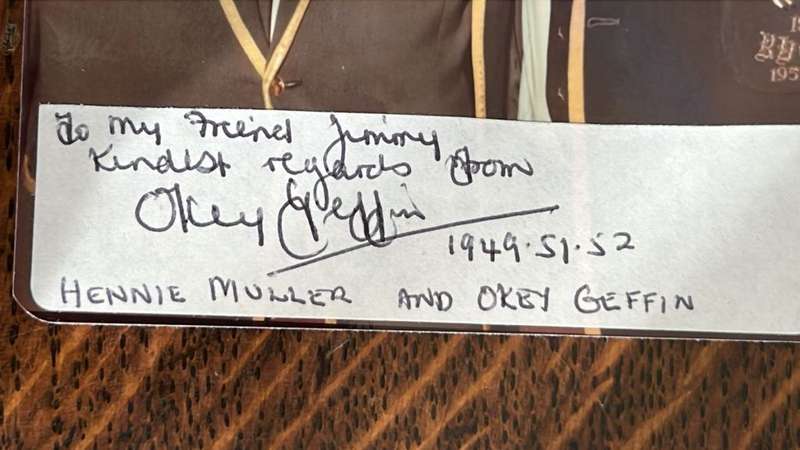 To my Freind Jimmy
Kindest regards from
Okey Geffin
1949.51.52
HENNIE MULLER AND OKEY GEFFIN
195